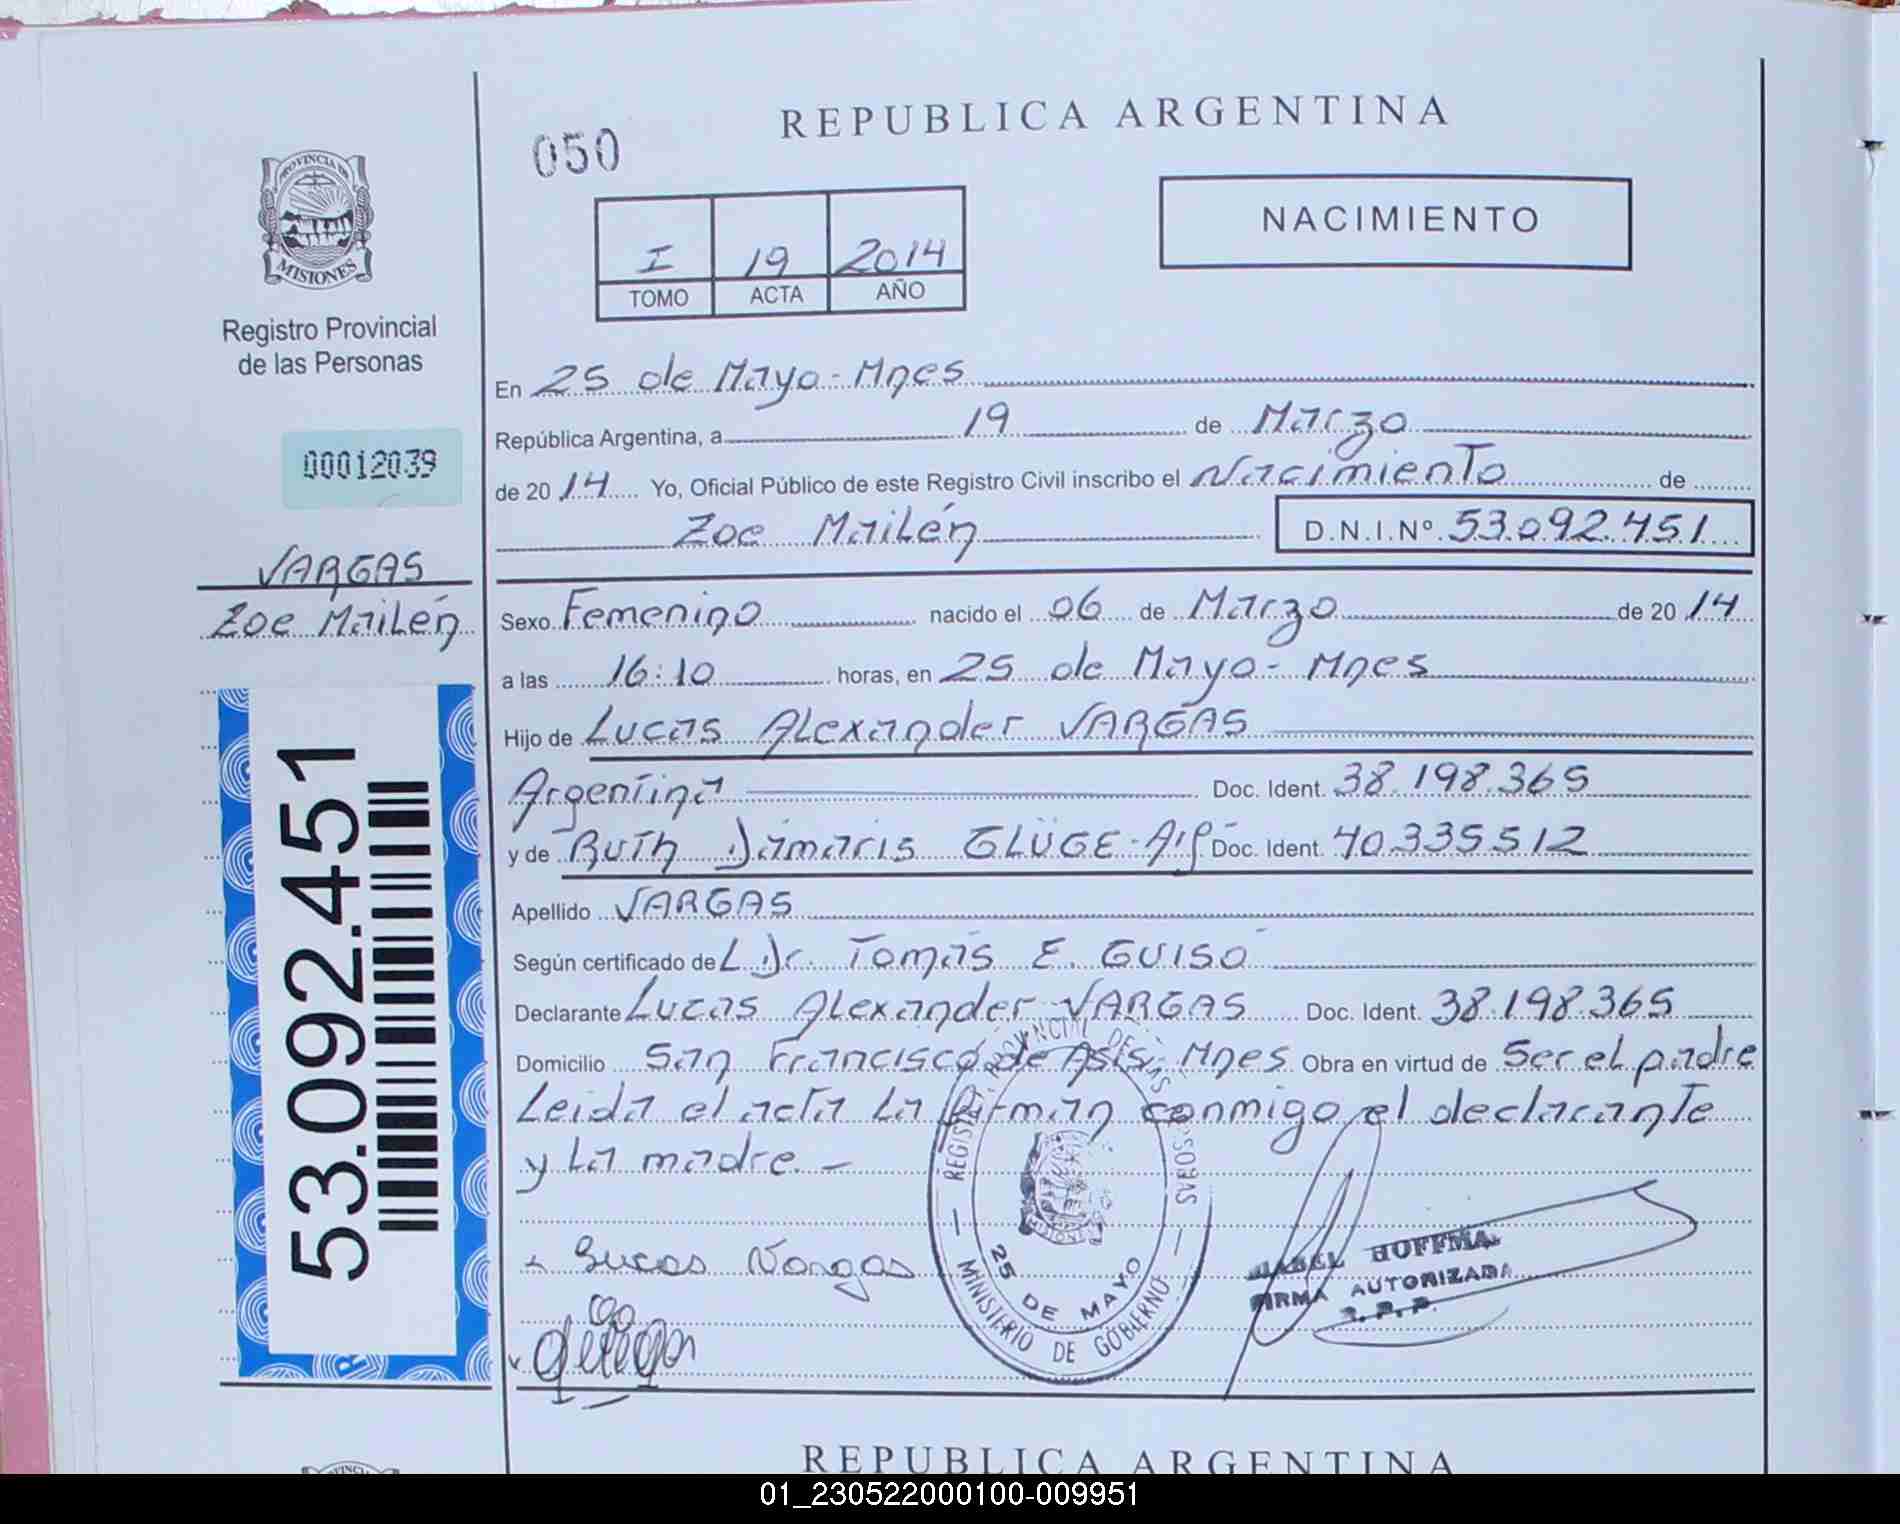 REPUBLICA ARGENTINA
050
NACIMIENTO
I 19 2014
TOMO ACTA AÑO
PROVINCIA DE
MISIONES
Registro Provincial
de las Personas
00012039
VARGAS
Zoe Mailén
53.092.451
En 25 de Mayo - Mnes
República Argentina, a 19 de Marzo
de 2014 Yo, Oficial Público de este Registro Civil inscribo el Nacimiento de
Zoe Mailén D.N.I.Nº 53.092.451
Sexo Femenino nacido el 06 de Marzo de 2014
a las 16:10 horas, en 25 de Mayo - Mnes
Hijo de Lucas Alexander VARGAS
Argentina Doc. Ident. 38.198.365
y de Ruth Dámaris GLÜGE - Doc. Ident. 40.335.512
Apellido VARGAS
Según certificado de L Dr. Tomás E. GUISO
Declarante Lucas Alexander VARGAS Doc. Ident. 38.198.365
Domicilio San Francisco de Asis - Mnes Obra en virtud de Ser el padre
Leida el acta La firman conmigo el declarante
y La madre. -
Lucas Vargas
25 DE MAYO
MINISTERIO DE GOBIERNO
FIRMA AUTORIZADA
R. P. P.
REPUBLICA ARGENTINA
01_230522000100-009951